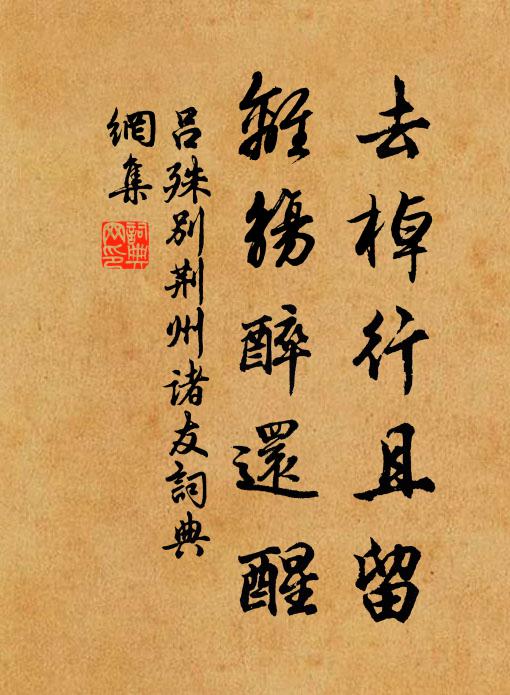 去棹行且留
離觴醉還醒
呂殊別荆州諸友詞典
網集
詞典
网印